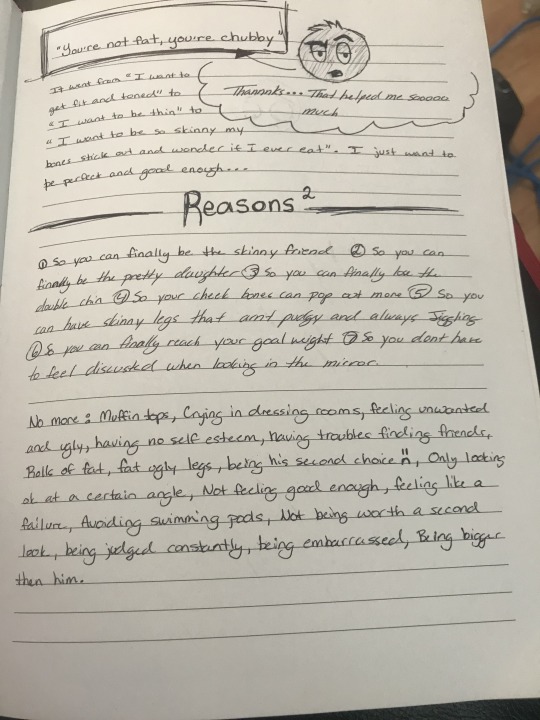 "You're not fat, you're chubby"
It went from "I want to
get fit and toned" to
"I want to be thin" to
"I want to be so skinny my
bones stick out and wonder if I ever eat". I just want to
be perfect and good enough...
Thannnks... That helped me sooooo
much
Reasons²
① So you can finally be the skinny friend ② So you can
finally be the pretty daughter ③ So you can finally lose the
double chin ④ So your cheek bones can pop out more ⑤ So you
can have skinny legs that arnt pudgy and always jiggling
⑥ So you can finally reach your goal weight ⑦ So you dont have
to feel discusted when looking in the mirror.
No more: Muffin tops, Crying in dressing rooms, feeling unwanted
and ugly, having no self esteem, having troubles finding friends,
Rolls of fat, fat ugly legs, being his second choice, Only looking
ok at a certain angle, Not feeling good enough, feeling like a
failure, Avoiding swimming pools, Not being worth a second
look, being judged constantly, being embarrassed, Being bigger
then him.